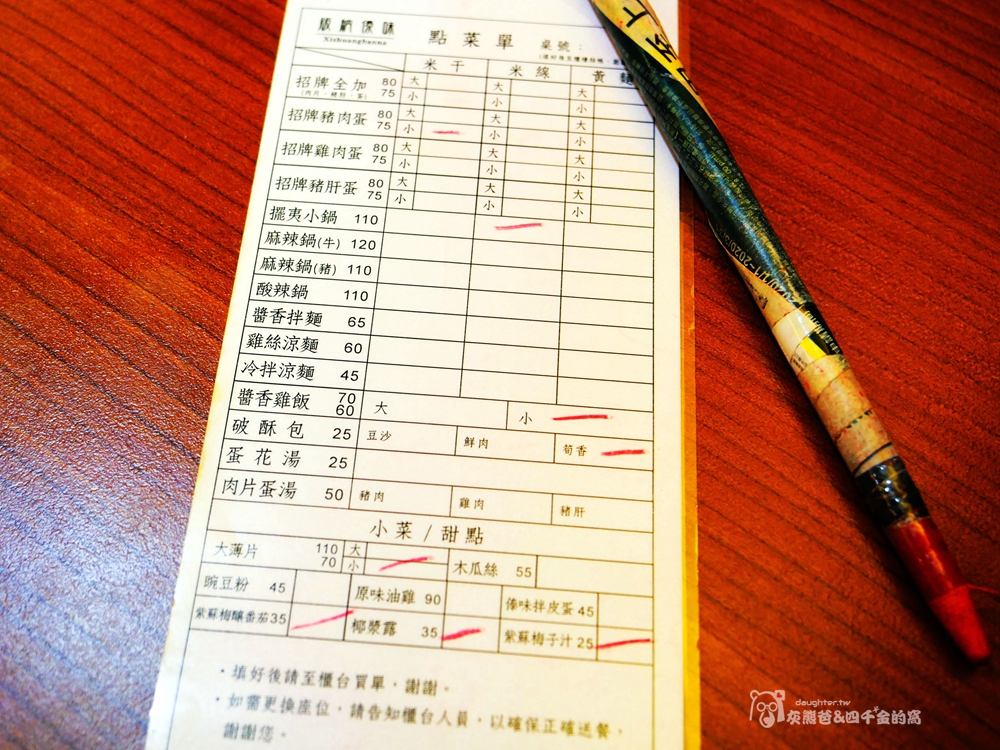 版納傣味
Xishuangbanna
點菜單 桌號：
米干 米線 黃麵
招牌全加 80 75 大 小 大 小 大 小
(肉片、豬肝、蛋)
招牌豬肉蛋 80 75 大 小 大 小 大 小
招牌雞肉蛋 80 75 大 小 大 小 大 小
招牌豬肝蛋 80 75 大 小 大 小 大 小
擺夷小鍋 110
麻辣鍋(牛) 120
麻辣鍋(豬) 110
酸辣鍋 110
醬香拌麵 65
雞絲涼麵 60
冷拌涼麵 45
醬香雞飯 70 60 大 小
破酥包 25 豆沙 鮮肉 筍香
蛋花湯 25
肉片蛋湯 50 豬肉 雞肉 豬肝
小菜/甜點
大薄片 110 70 大 小 木瓜絲 55
豌豆粉 45 原味油雞 90 傣味拌皮蛋 45
紫蘇梅釀番茄 35 椰漿露 35 紫蘇梅子汁 25
・填好後請至櫃台買單，謝謝。
・如需更換座位，請告知櫃台人員，以確保正確送餐，
謝謝您。
daughter.tw
灰熊爸&四千金的窩